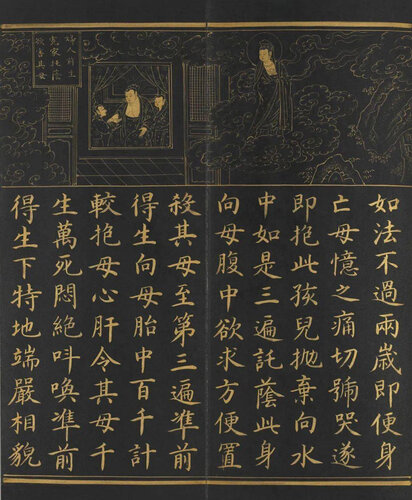 婦人前生
寃家托蔭
欲害其母
如法不過兩歲即便身
亡母憶之痛切號哭遂
即抱此孩兒拋棄向水
中如是三遍託蔭此身
向母腹中欲求方便置
殺其母至第三遍凖前
得生向母胎中百千計
較抱母心肝令其母千
生萬死悶絕叫喚凖前
得生下特地端嚴相貌